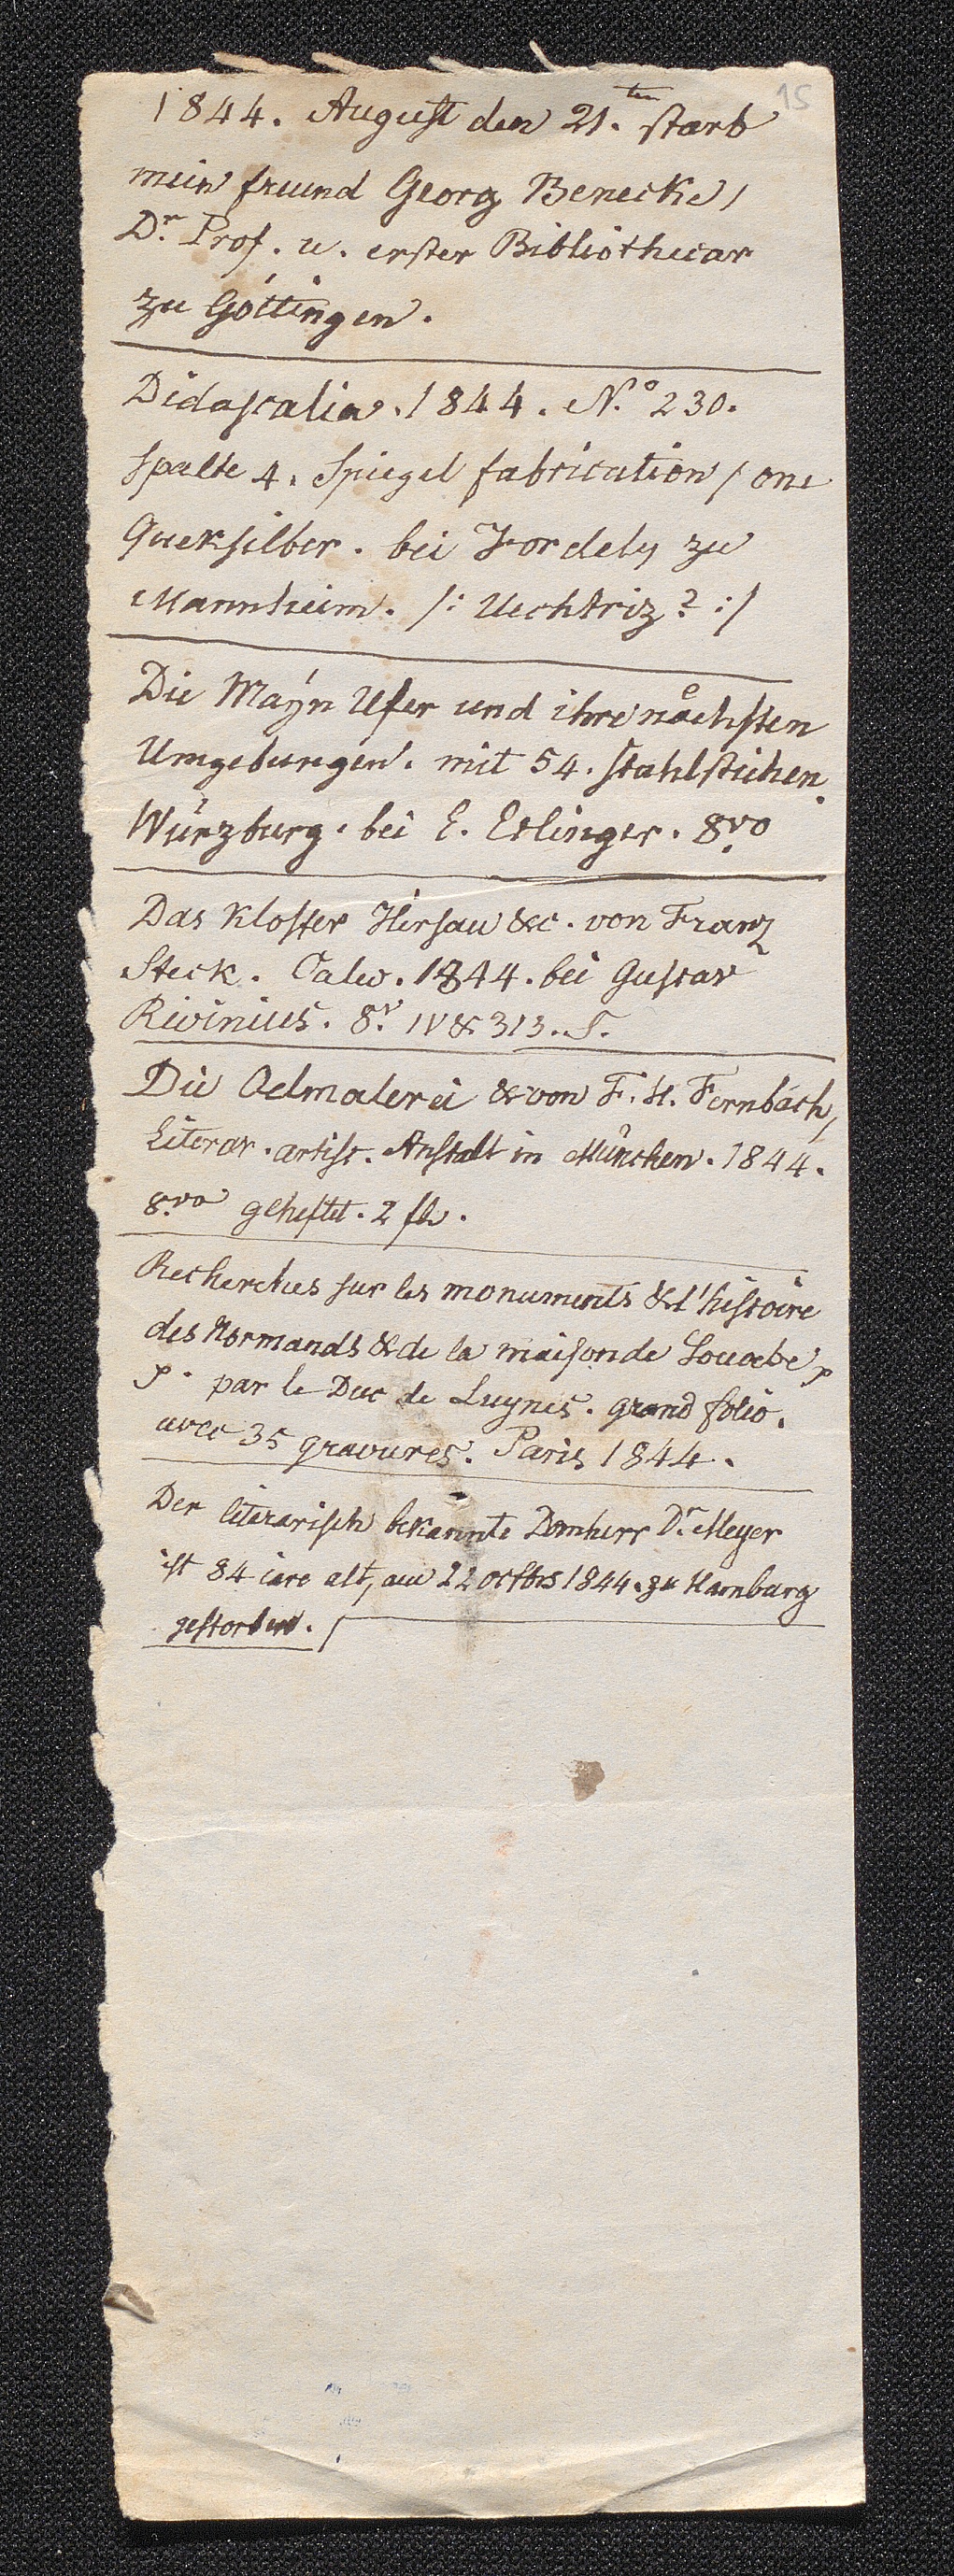 15
1844. August den 21.ten starb
mein freund Georg Benecke,
Dr. Prof. u. erster Bibliothecar
zu Göttingen.
Didascalia. 1844. N.o 230.
Spalte 4. Spiegel fabrication / one
Queksilber. bei Fordely zu
Mannheim. /: Uechtriz? :/
Die Mayn Ufer und ihre nächsten
Umgebungen. mit 54. Stahlstichen.
Würzburg. bei E. Etlinger. 8.vo
Das Kloster Hirsau &c. von Franz
Steck. Calw. 1844. bei Gustav
Rivinius. 8.v IV & 313. S.
Die Oelmalerei & von F. X. Fernbach,
Literar. artist. Anstalt in München. 1844.
8.vo geheftet. 2 fl.
Recherches sur les monuments & l'histoire
des Normands & de la maison de Souabe
par le Duc de Luynes. grand folio.
avec 35 gravures. Paris 1844.
Der literarisch bekannte Domherr Dr. Meyer
ist 84 iare alt, am 22 octbrs 1844. zu Hamburg
gestorben.